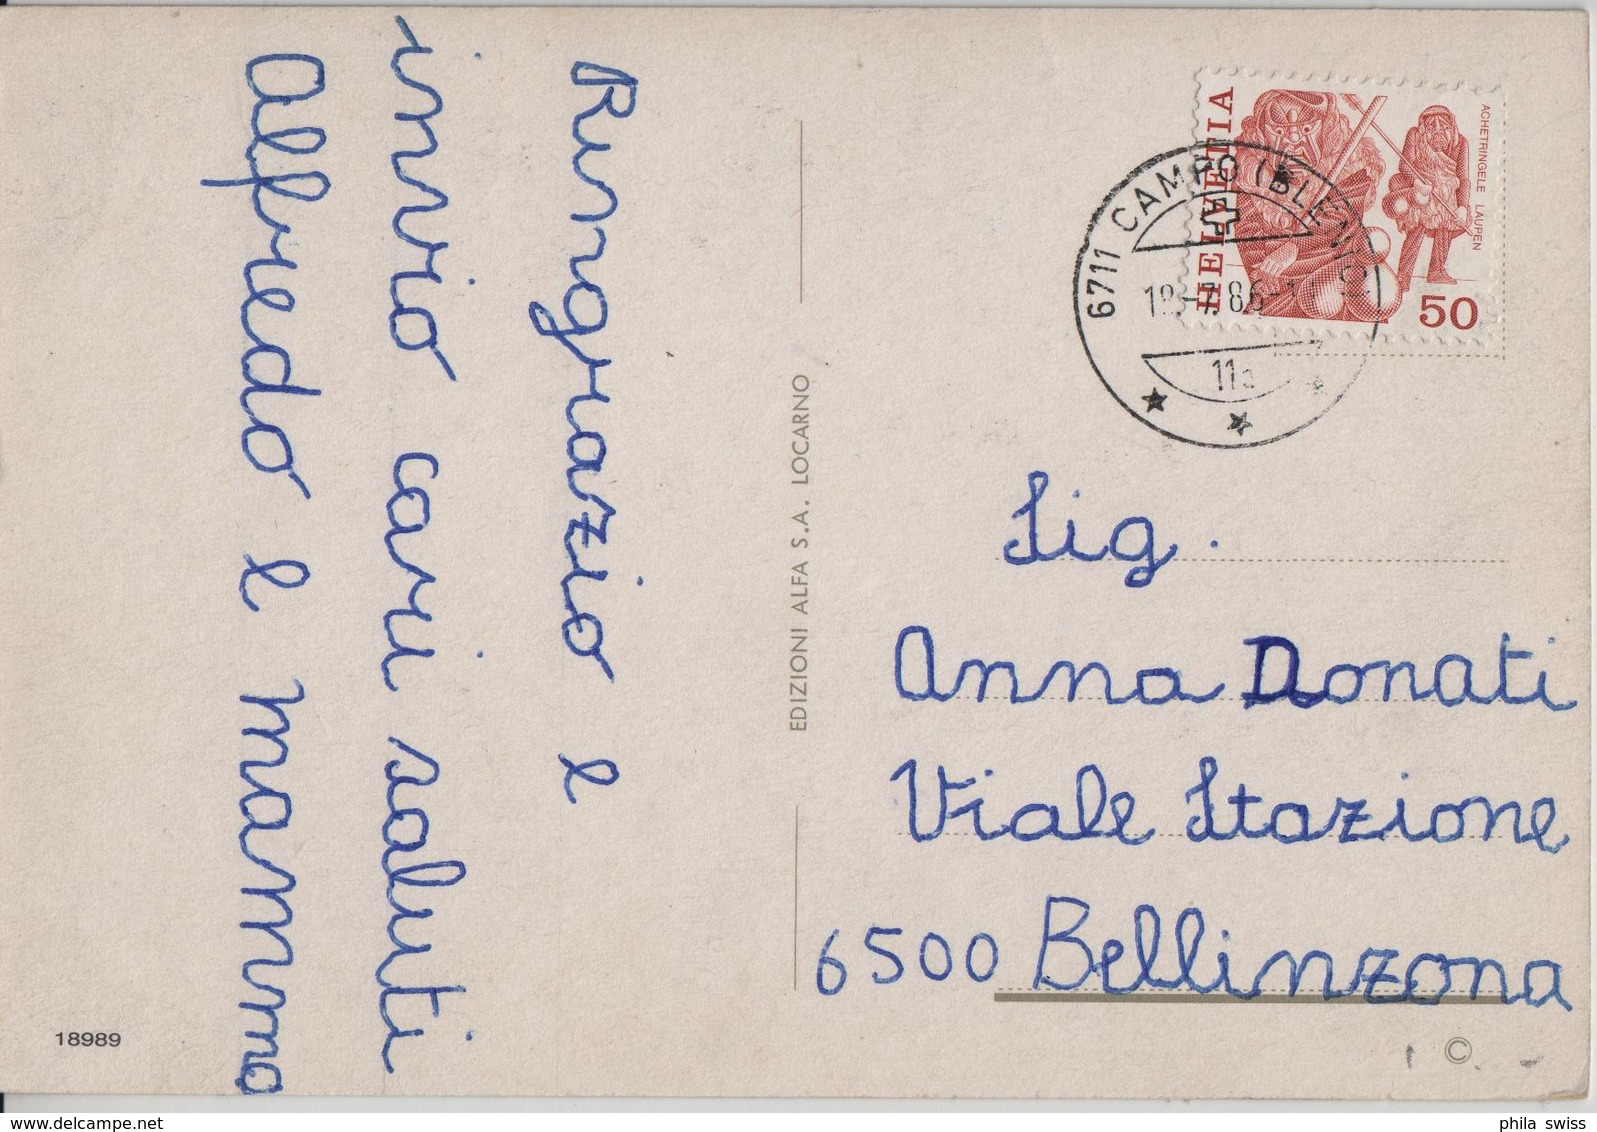 Ringrazio e
invio cari saluti
Alfredo e mamma
18989
EDIZIONI ALFA S.A. LOCARNO
HELVETIA
ACHETRINGELE LAUPEN
50
6711 CAMPO (BLENIO)
11a
Sig.
Anna Donati
Viale Stazione
6500 Bellinzona
©
phila swiss